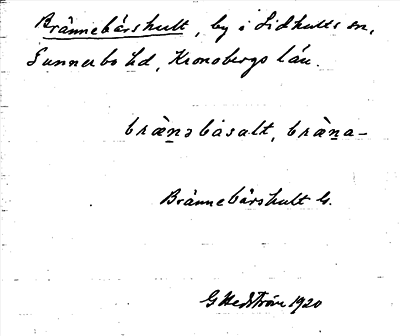 Brännebårshult, by i Lidhults sn,
Sunnerbo hd, Kronobergs län.
bræ̀nəbåsalt, bræ̀na-
Brännebårshult G.
G Hedström 1920